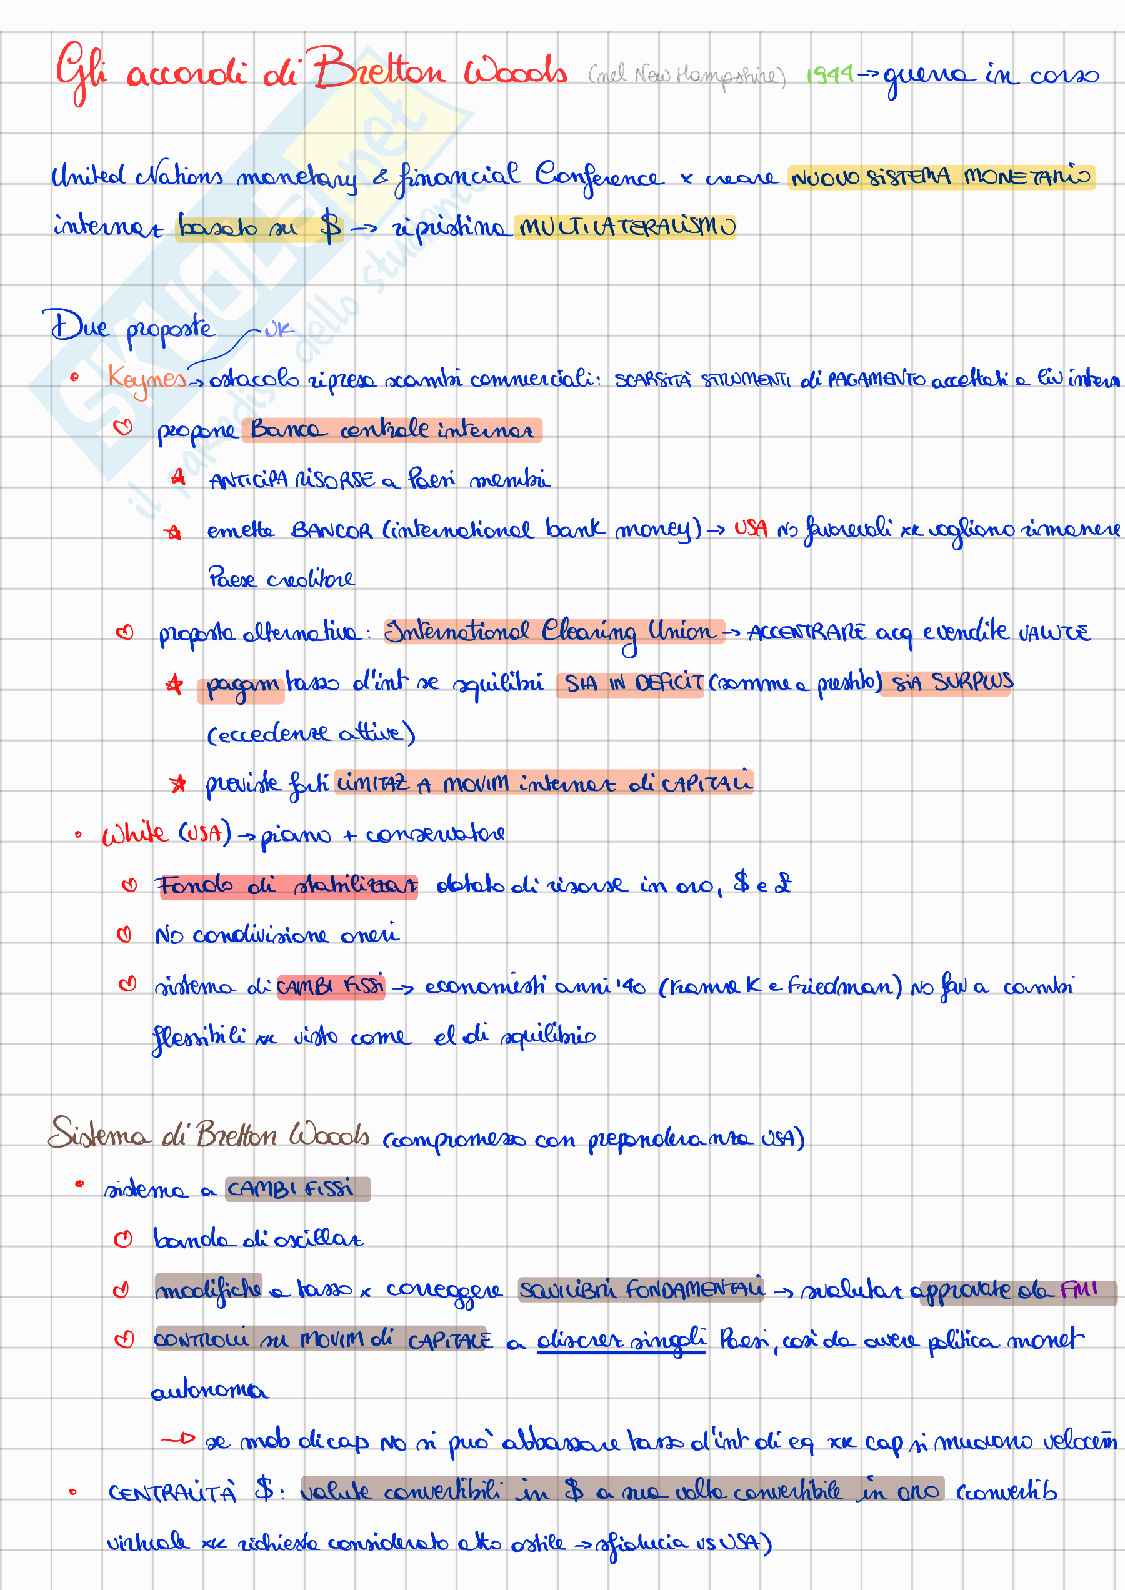 Gli accordi di Bretton Woods (nel New Hampshire) 1944 → guerra in corso
United Nations monetary & financial Conference x creare NUOVO SISTEMA MONETARIO
internaz basato su $ → ripristina MULTILATERALISMO
Due proposte UK
• Keynes → ostacolo ripresa scambi commerciali: SCARSITÀ STRUMENTI di PAGAMENTO accettati a liv intern
propone Banca centrale internaz
ANTICIPA RISORSE a Paesi membri
emette BANCOR (international bank money) → USA NO favorevoli xk vogliono rimanere
Paese creditore
proposta alternativa: International Clearing Union → ACCENTRARE acq e vendite VALUTE
pagam tasso d'int se squilibri SIA IN DEFICIT (somme a prestito) SIA SURPLUS
(eccedenze attive)
previste forti LIMITAZ A MOVIM internaz di CAPITALI
• White (USA) → piano + conservatore
Fondo di stabilizzaz dotato di risorse in oro, $ e £
NO condivisione oneri
sistema di CAMBI FISSI → economisti anni '40 (tranne K e Friedman) NO fav a cambi
flessibili xk visto come el di squilibrio
Sistema di Bretton Woods (compromesso con preponderanza USA)
• sistema a CAMBI FISSI
banda di oscillaz
modifiche a tasso x correggere SQUILIBRI FONDAMENTALI → svalutaz approvate da FMI
CONTROLLI su MOVIM di CAPITALE a discrez singoli Paesi, così da avere politica monet
autonoma
→ se mob di cap NO si può abbassare tasso d'int di eq xk cap si muovono velocem
• CENTRALITÀ $: valute convertibili in $ a sua volta convertibile in oro (convertib
virtuale xk richiesta considerato atto ostile → sfiducia vs USA)
SKUOLA.net
il paradiso dello studente